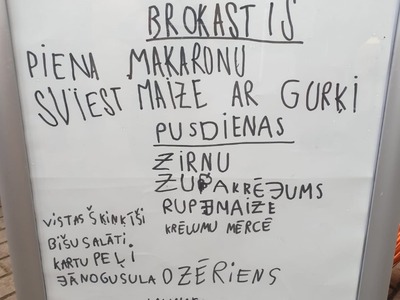 BROKASTIS
PIENA MAKARONU
SVIEST MAIZE AR GURĶI
PUSDIENAS
ZIRNU
ZUPA KRĒJUMS
RUPJMAIZE
VISTAS ŠĶIŅĶĪŠI KRĒJUMU MĒRCĒ
BIŠU SALĀTI.
KARTUPEĻI
JĀNOGU SULA DZĒRIENS